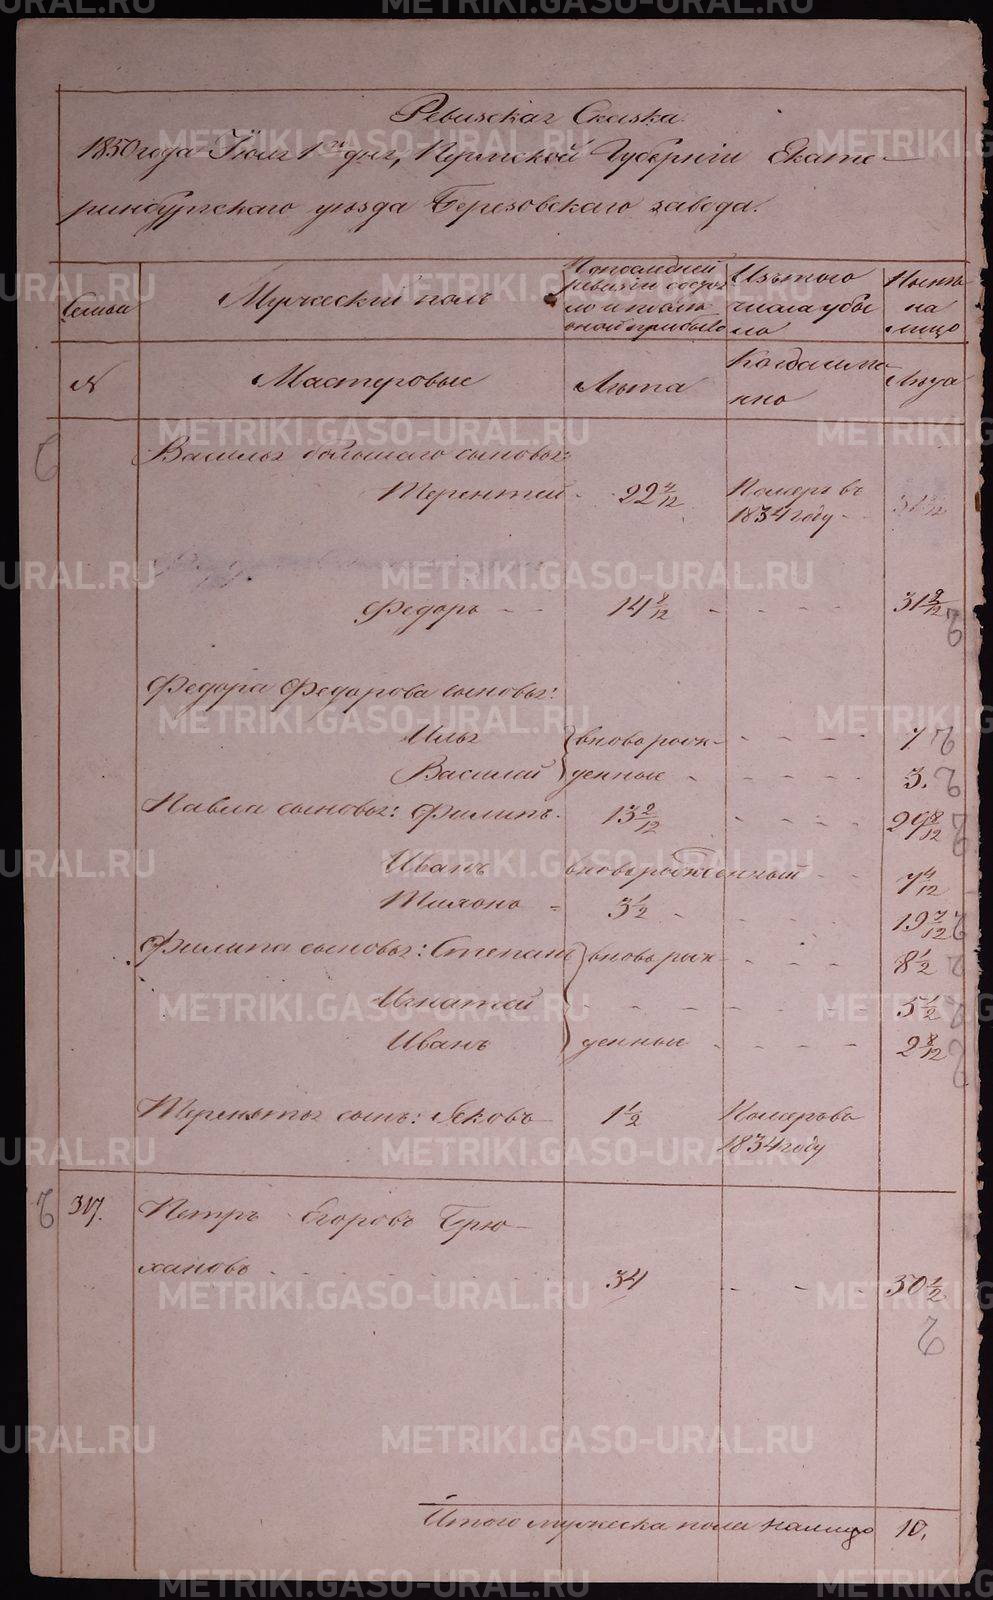 Ревизская Сказка
1850 года Іюля 1го дня, Пермской Губерніи Екате-
ринбургскаго уѣзда Березовскаго завода.
Семьи
Мужескій полъ
По последней ревизіи состоя
ло и после
оной прибыло
Изътого
числа убы
ло
Нынѣ
на
лицо
№
Мастеровые
Лѣта
Когда имя-
нно
Лѣта
Василья большаго сыновья:
Терентей - 22 4/12 Померъ въ
1834 году -
Федоръ - - 14 8/12 - - - - 31 2/12
Федора Федорова сыновья:
Илья } вновь рож- - - - 7
Василий } денные - - - - 3.
Павла сыновья: Филипъ. 13 2/12 - - - - 29 8/12
Иванъ вноворожденный - - 7 4/12
Тихонъ = 3 1/2 - - - - 19 7/12
Филипа сыновья: Степанъ } вновь рож- - - - 8 1/2
Игнатей - - - - - 5 1/2
Иванъ } денные - - - - 2 8/12
Терентья сынъ: Яковъ 1 1/2 Померъ въ
1834 году
317. Петръ Егоровъ Брю-
хановъ - - - - - 34 - - - 50 1/2
Итого мужеска пола налицо 10.
METRIKI.GASO-URAL.RU